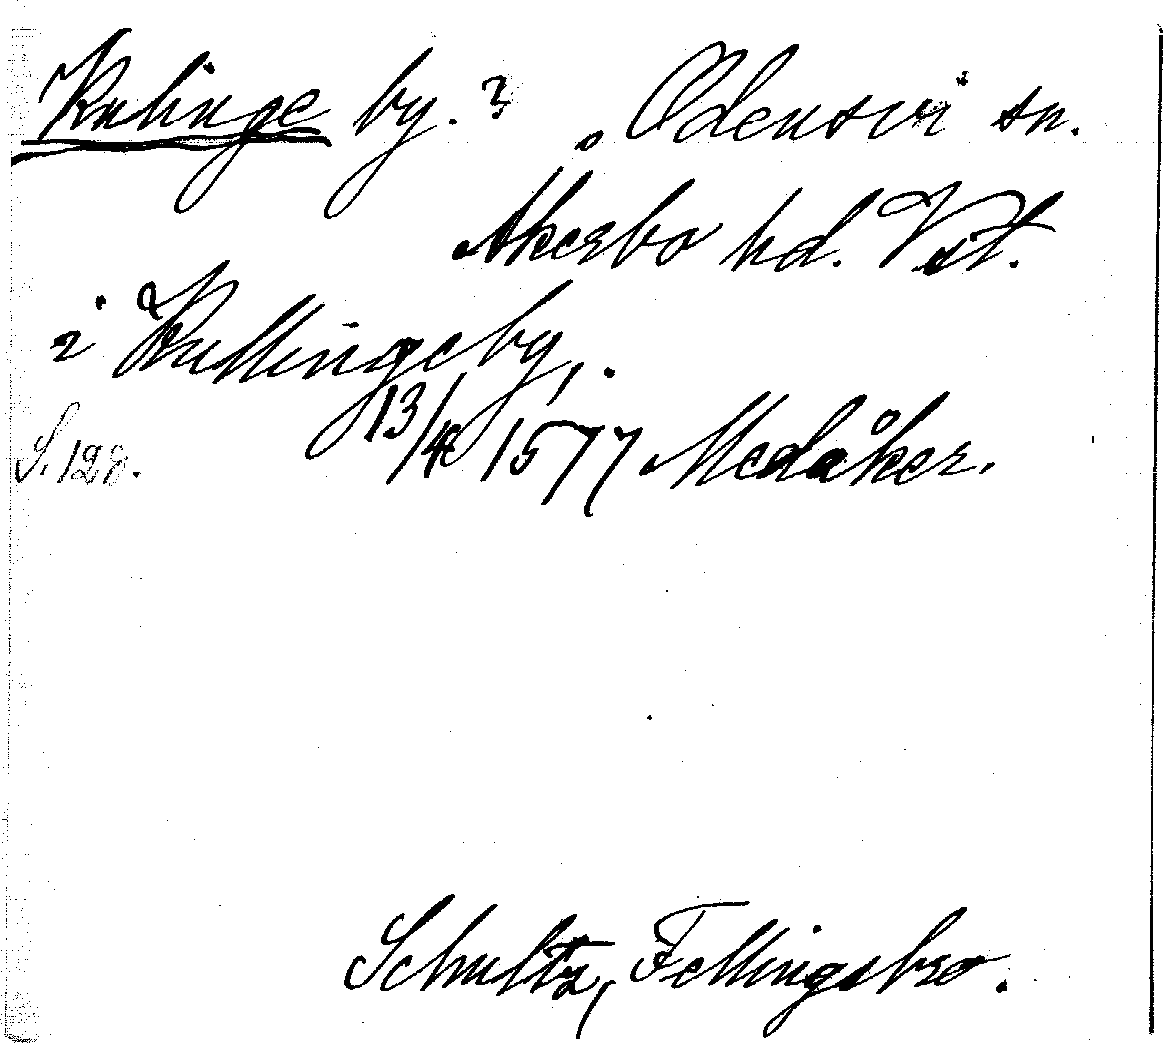 Kulinge by. ? Odensvi sn.
Åkerbo hd. Vstm.
i Kullingeby,.
S. 128. 13/4 1577 Medåker.
Schultz, Fellingsbro.